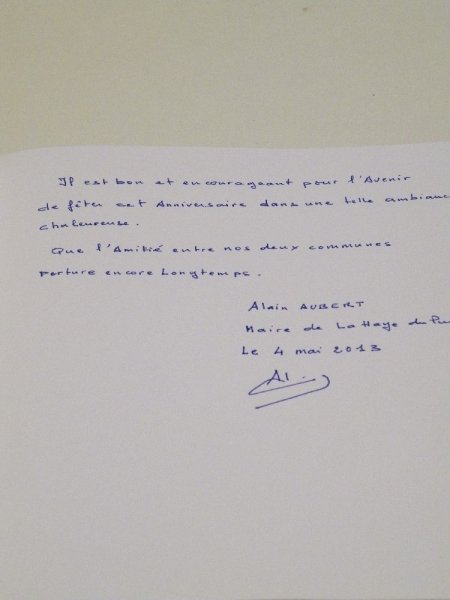 Il est bon et encourageant pour l'Avenir
de fêter cet Anniversaire dans une telle ambianc
chaleureuse.
Que l'Amitié entre nos deux communes
Perdure encore Longtemps.
Alain AUBERT
Maire de La Haye du Pu
Le 4 mai 2013